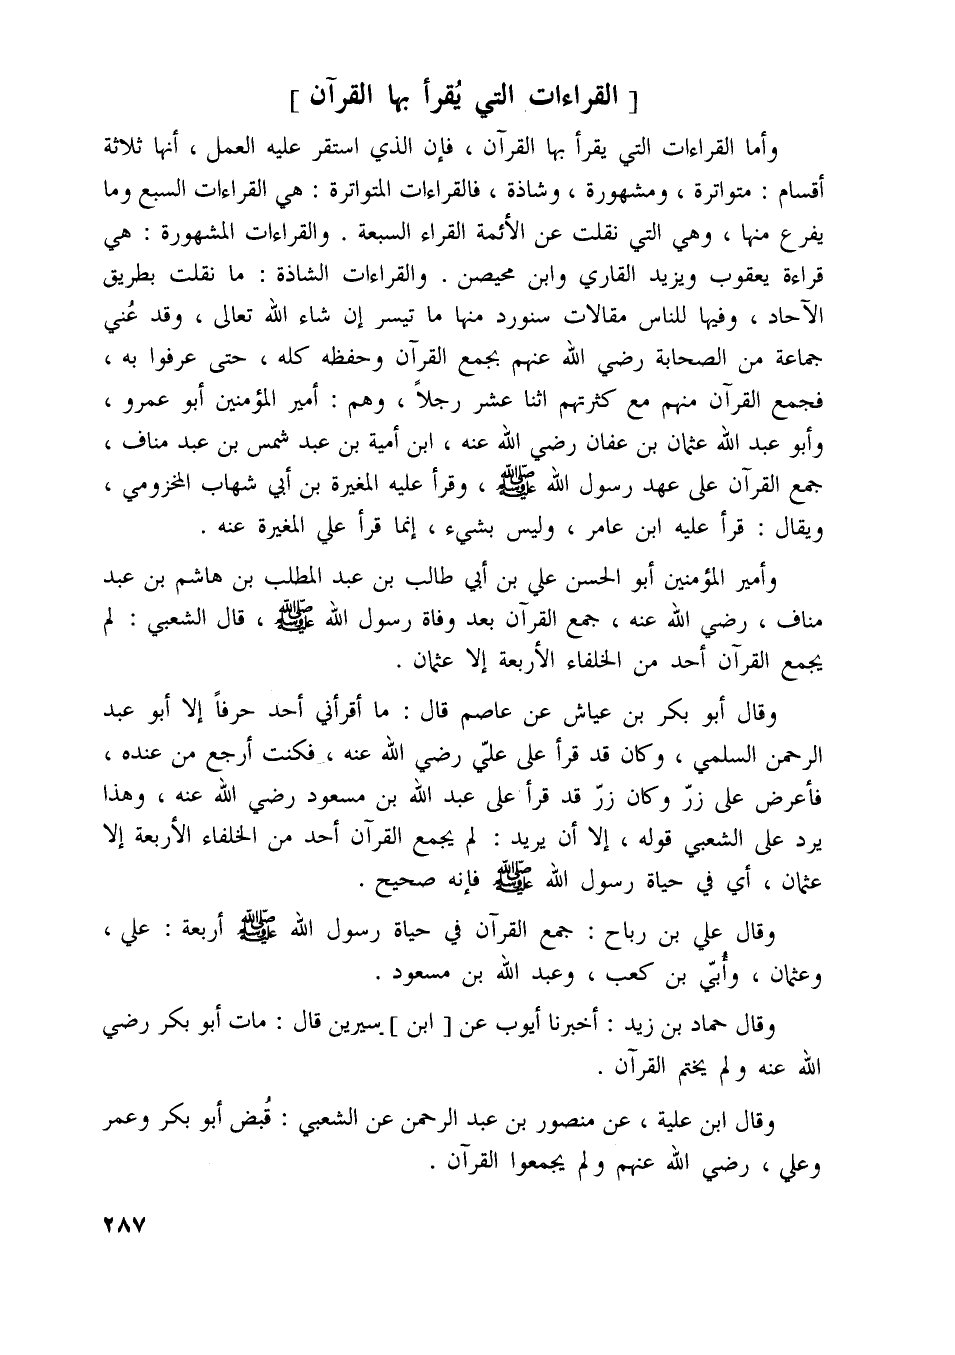 [ القراءات التي يُقرأ بها القرآن ]
وأما القراءات التي يقرأ بها القرآن ، فإن الذي استقر عليه العمل ، أنها ثلاثة
أقسام : متواترة ، ومشهورة ، وشاذة ، فالقراءات المتواترة : هي القراءات السبع وما
يفرع منها ، وهي التي نقلت عن الأئمة القراء السبعة . والقراءات المشهورة : هي
قراءة يعقوب ويزيد القاري وابن محيصن . والقراءات الشاذة : ما نقلت بطريق
الآحاد ، وفيها للناس مقالات سنورد منها ما تيسر إن شاء الله تعالى ، وقد عُني
جماعة من الصحابة رضي الله عنهم بجمع القرآن وحفظه كله ، حتى عرفوا به ،
فجمع القرآن منهم مع كثرتهم اثنا عشر رجلاً ، وهم : أمير المؤمنين أبو عمرو ،
وأبو عبد الله عثمان بن عفان رضي الله عنه ، ابن أمية بن عبد شمس بن عبد مناف ،
جمع القرآن على عهد رسول الله ﷺ ، وقرأ عليه المغيرة بن أبي شهاب المخزومي ،
ويقال : قرأ عليه ابن عامر ، وليس بشيء ، إنما قرأ علي المغيرة عنه .
وأمير المؤمنين أبو الحسن علي بن أبي طالب بن عبد المطلب بن هاشم بن عبد
مناف ، رضي الله عنه ، جمع القرآن بعد وفاة رسول الله ﷺ ، قال الشعبي : لم
يجمع القرآن أحد من الخلفاء الأربعة إلا عثمان .
وقال أبو بكر بن عياش عن عاصم قال : ما أقرأني أحد حرفاً إلا أبو عبد
الرحمن السلمي ، وكان قد قرأ على عليّ رضي الله عنه ، فكنت أرجع من عنده ،
فأعرض على زرّ وكان زرّ قد قرأ على عبد الله بن مسعود رضي الله عنه ، وهذا
يرد على الشعبي قوله ، إلا أن يريد : لم يجمع القرآن أحد من الخلفاء الأربعة إلا
عثمان ، أي في حياة رسول الله ﷺ فإنه صحيح .
وقال علي بن رباح : جمع القرآن في حياة رسول الله ﷺ أربعة : علي ،
وعثمان ، وأُبيّ بن كعب ، وعبد الله بن مسعود .
وقال حماد بن زيد : أخبرنا أيوب عن [ ابن ] سيرين قال : مات أبو بكر رضي
الله عنه ولم يختم القرآن .
وقال ابن علية ، عن منصور بن عبد الرحمن عن الشعبي : قُبض أبو بكر وعمر
وعلي ، رضي الله عنهم ولم يجمعوا القرآن .
٢٨٧